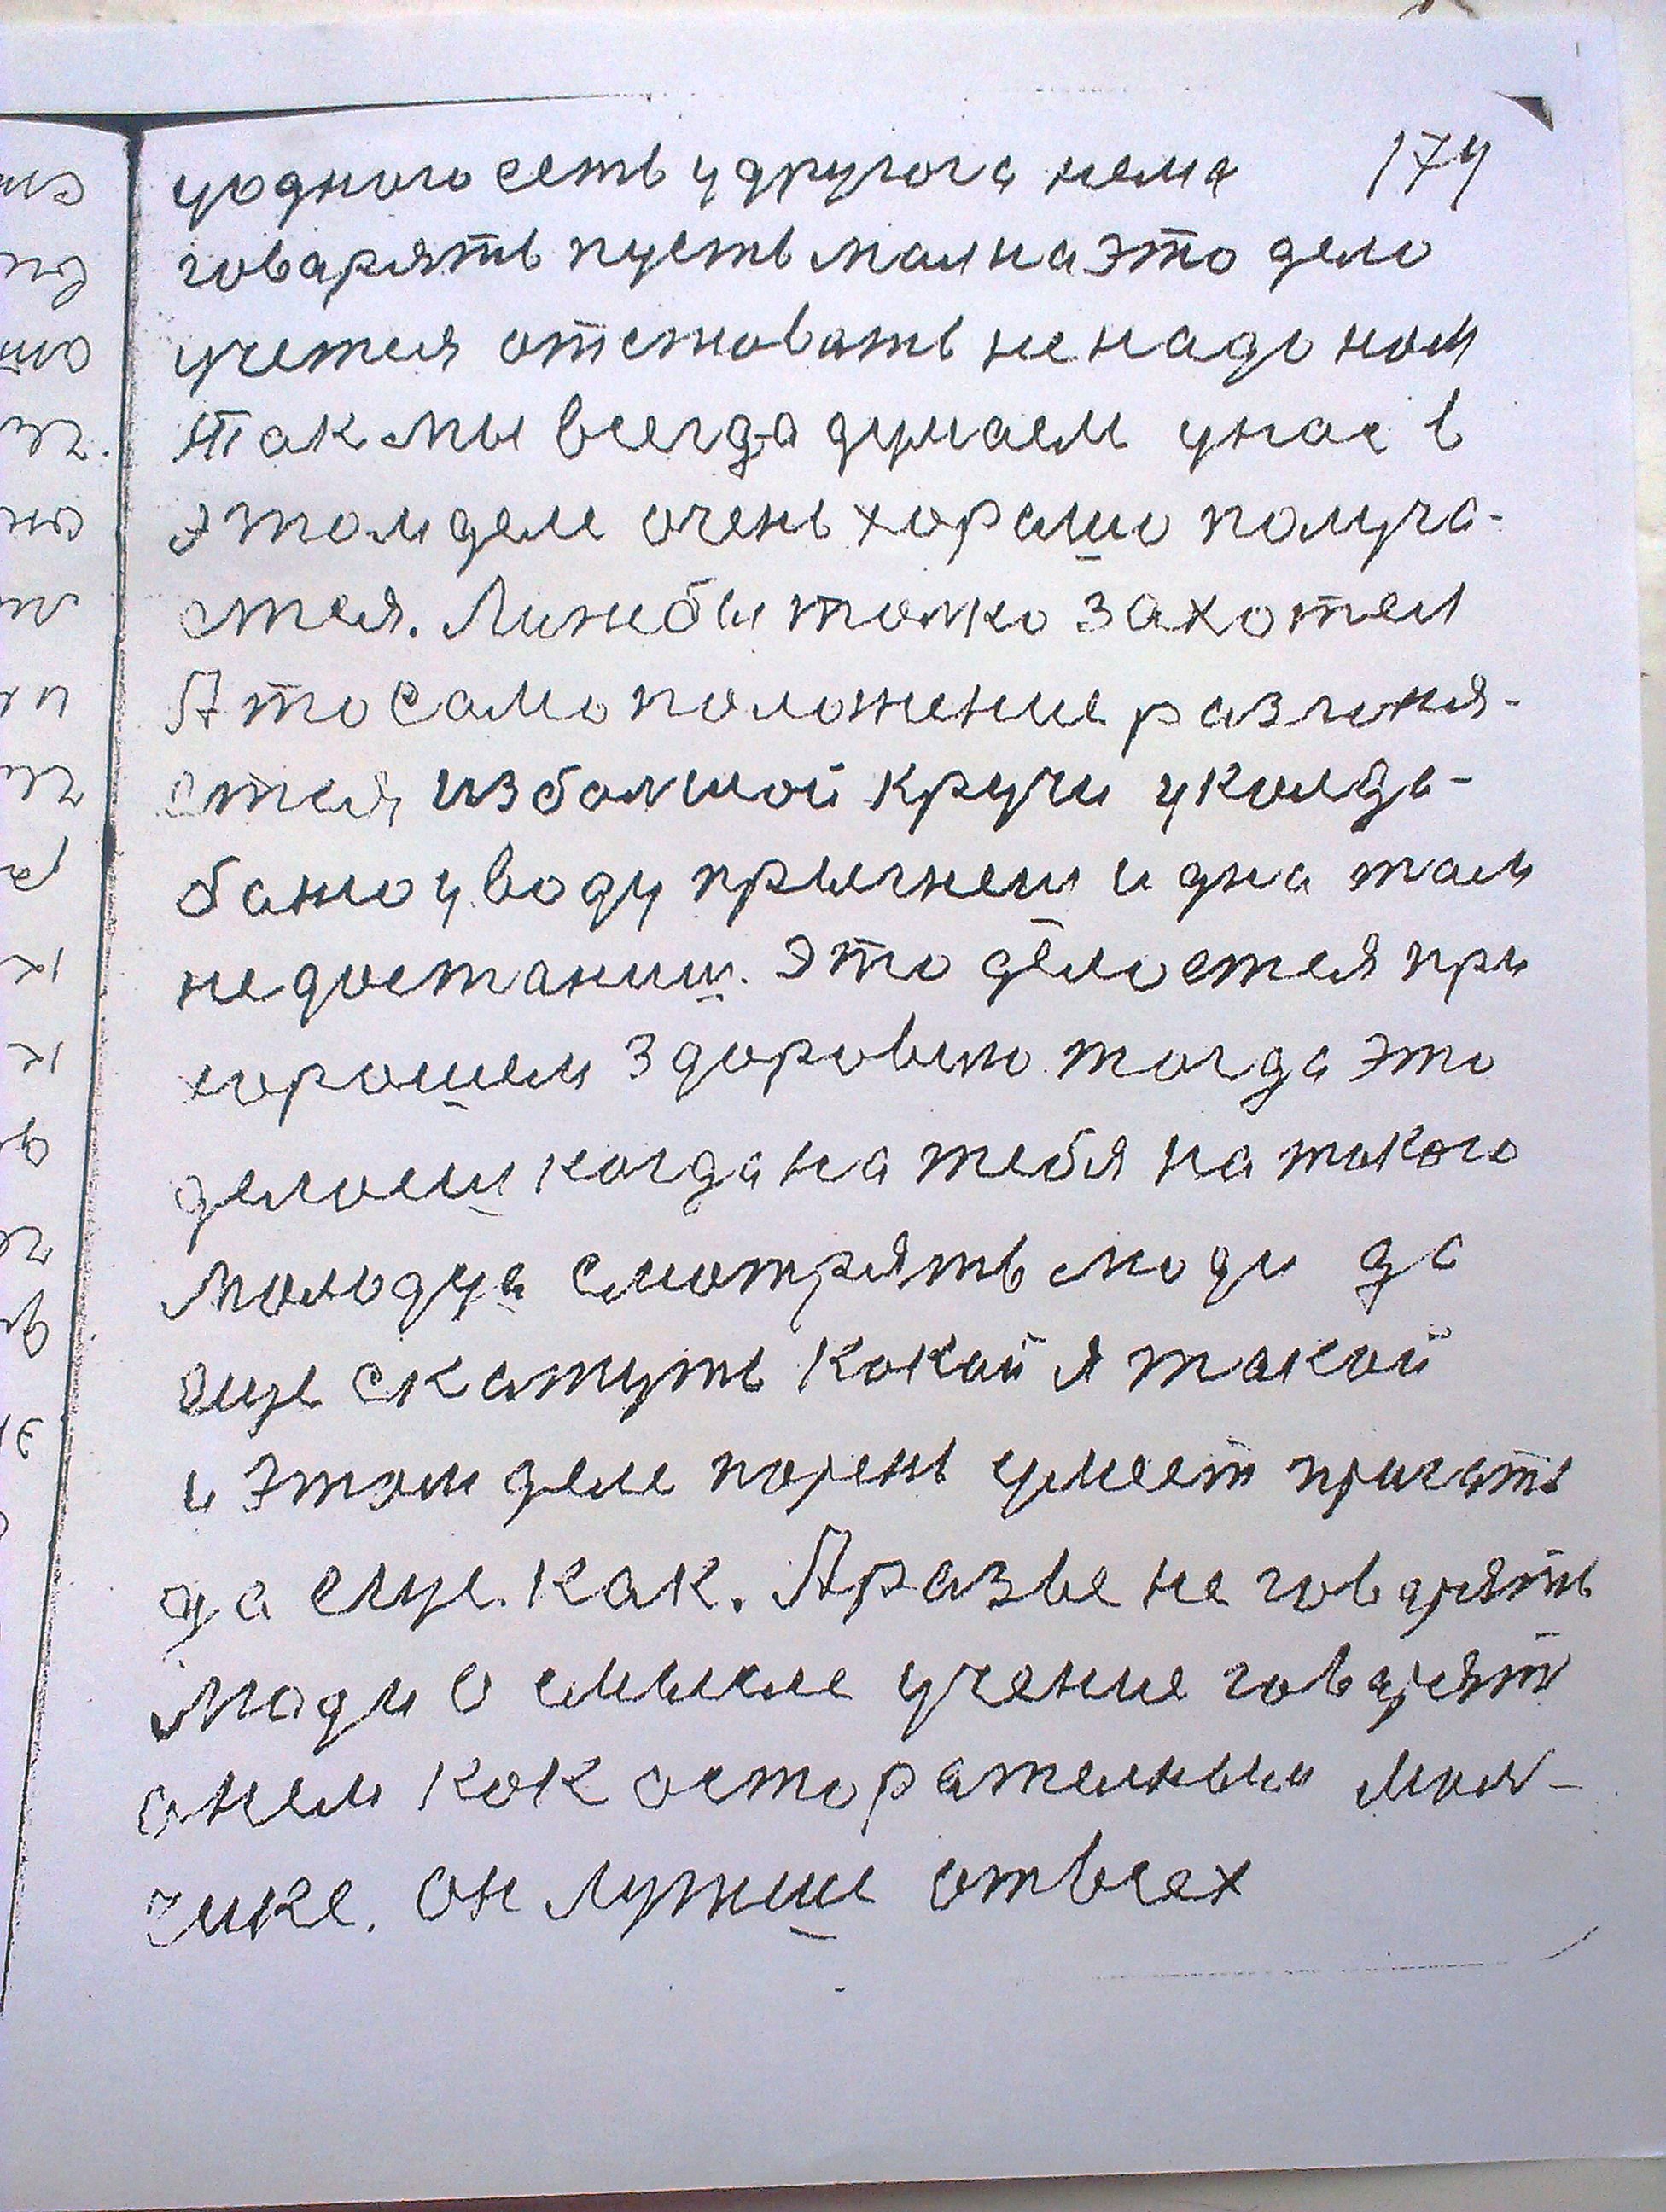 уодного есть удругога нема 174
говарять пусть малнаэто дело
учетця отстовать ненадо ном
Так мы всегда думаем унас в
этом деле очень хорашо получа-
етця. Лижбы толко захотел
А то само положение разгоня-
етця избалшой кручи уколдо-
баню уводу прыгнеш и дна там
недостаниш. Это делоетця при
хорошем здоровию тогда это
делоеш когда на тебя на токого
молодца смотрять люди да
еще скажуть кокий я такой
и этом деле порень умеет пригать
да еще как. А разве не говарять
люди о смысле учение говарят
онем кок осторательным мол-
чике. он лутше отвсех